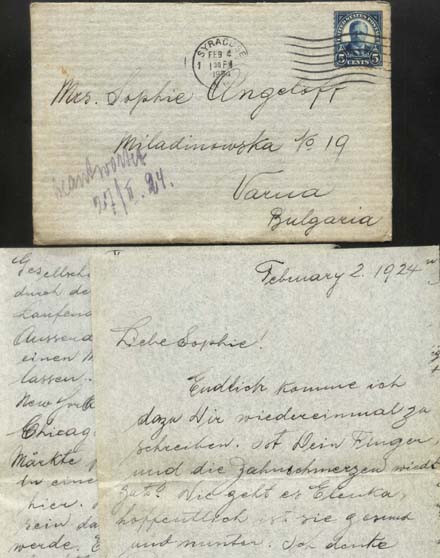 SYRACUSE
FEB 4
1 30 PM
1924
UNITED STATES POSTAGE
5 CENTS 5
Mrs. Sophie Angeloff
Miladinowska No 19
Varna
Bulgaria
beantwortet
27/II. 24.
Gesellscha
durch de
Laufend
Aussend
einen M
lassen.
New York
Chicago
Märkte
in eine
hier.
sein da
werde. E
February 2. 1924
Liebe Sophie!
Endlich komme ich
dazu Dir wiedereinmal zu
schreiben. Ist Dein Finger,
und die Zahnschmerzen wieder
gut? Wie geht es Elenka,
hoffentlich ist sie gesund
und munter. Ich danke